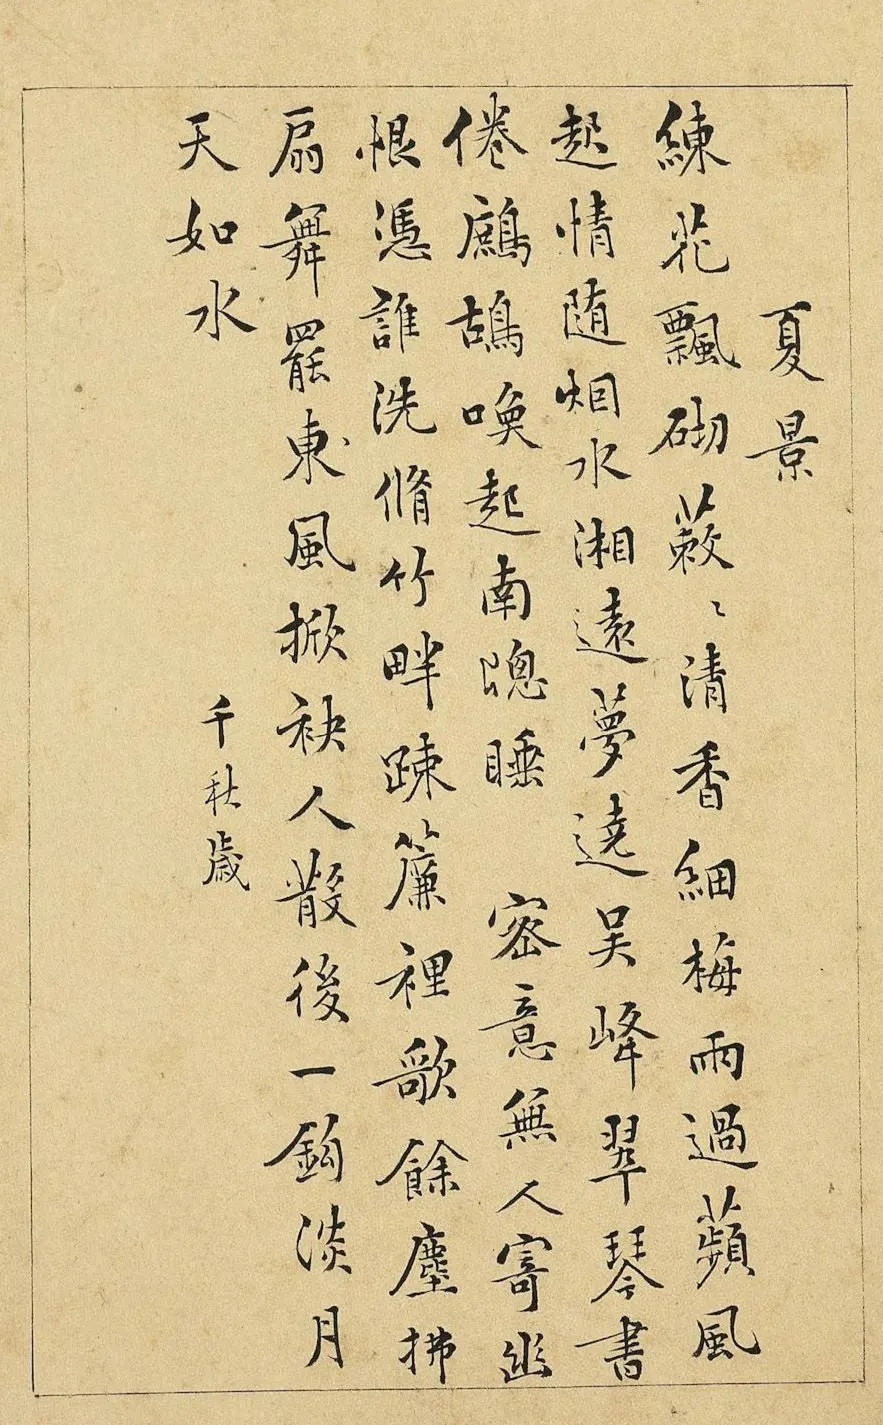 夏景
練花飄砌蔌〻清香細梅雨過蘋風
起情随烟水湘遠夢遶吴峰翠琴書
倦鷓鴣喚起南窻睡 密意無人寄幽
恨憑誰洗脩竹畔疎簾裡歌餘塵拂
扇舞罷東風掀袂人散後一鈎淡月
天如水
千秋歳